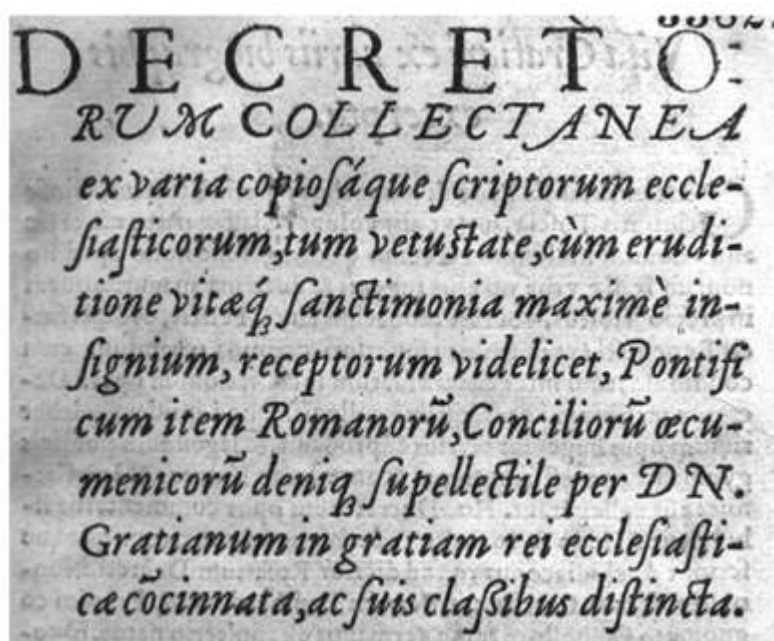 DECRETÒ-
RUM COLLECTANEA
ex varia copiosáque scriptorum eccle-
siasticorum, tum vetustate, cùm erudi-
tione vitæq́ꝫ sanctimonia maximè in-
signium, receptorum videlicet, Pontifi
cum item Romanorũ, Conciliorũ œcu-
menicorũ deniqꝫ supellectile per DN.
Gratianum in gratiam rei ecclesiasti-
cæ cõcinnata, ac suis claßibus distincta.